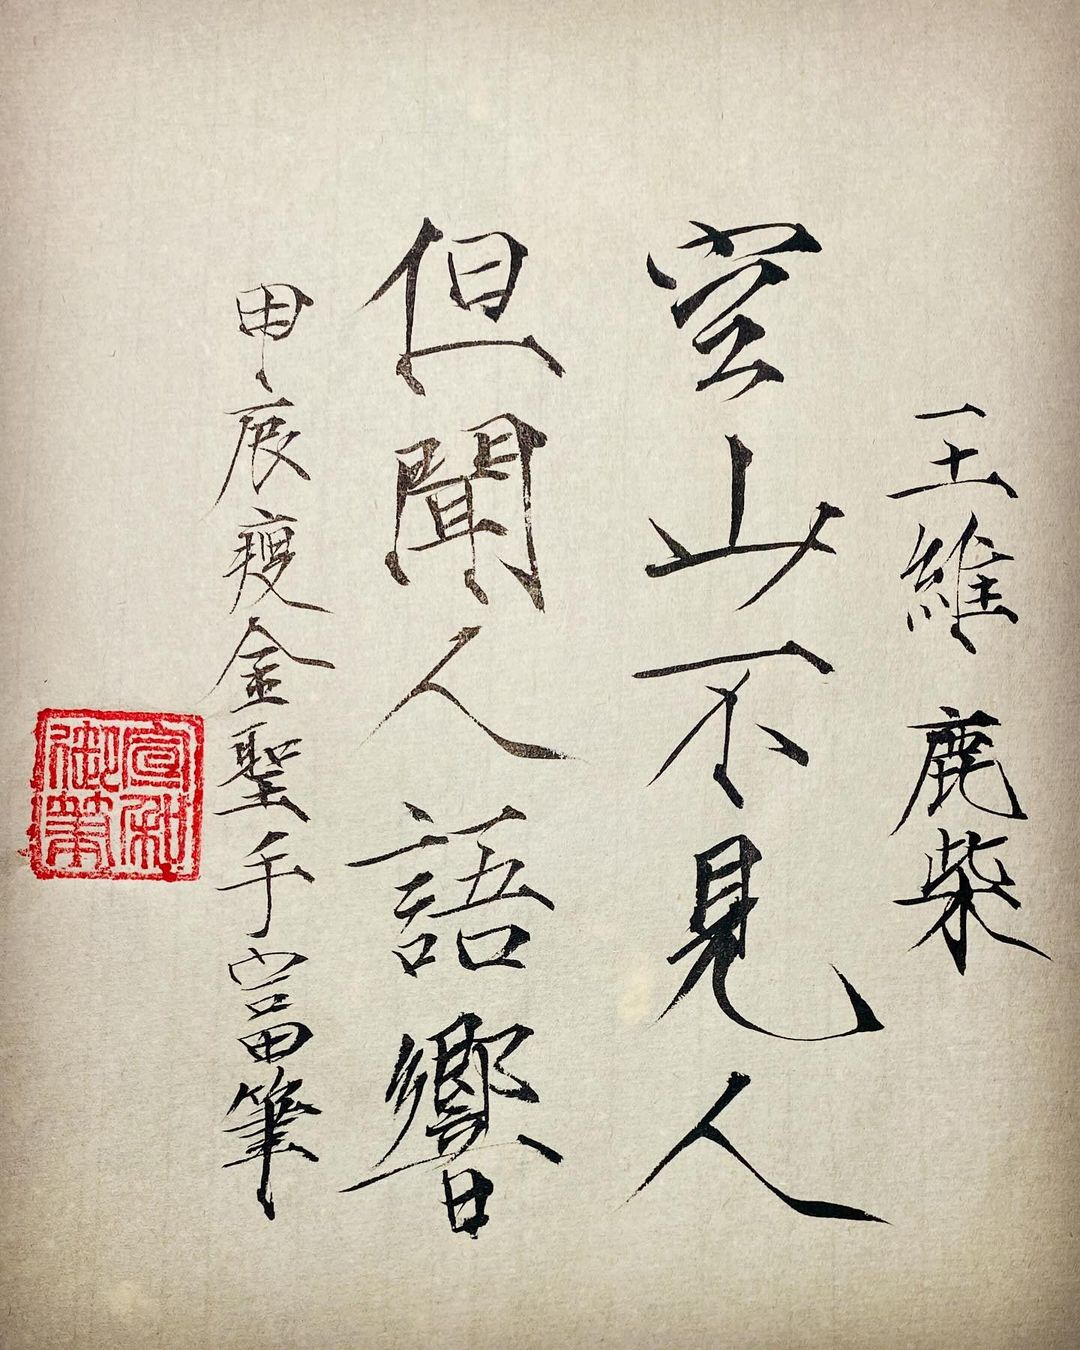 王維 鹿柴
空山不見人
但聞人語響
甲辰瘦金聖手富筆
宣和
御筆